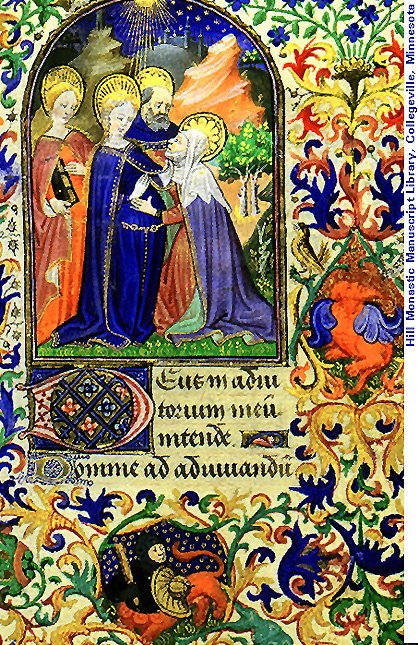 Deus in adiu
torium meū
intende.
Domine ad adiuuandū
Hill Monastic Manuscript Library, Collegeville, Minnesota